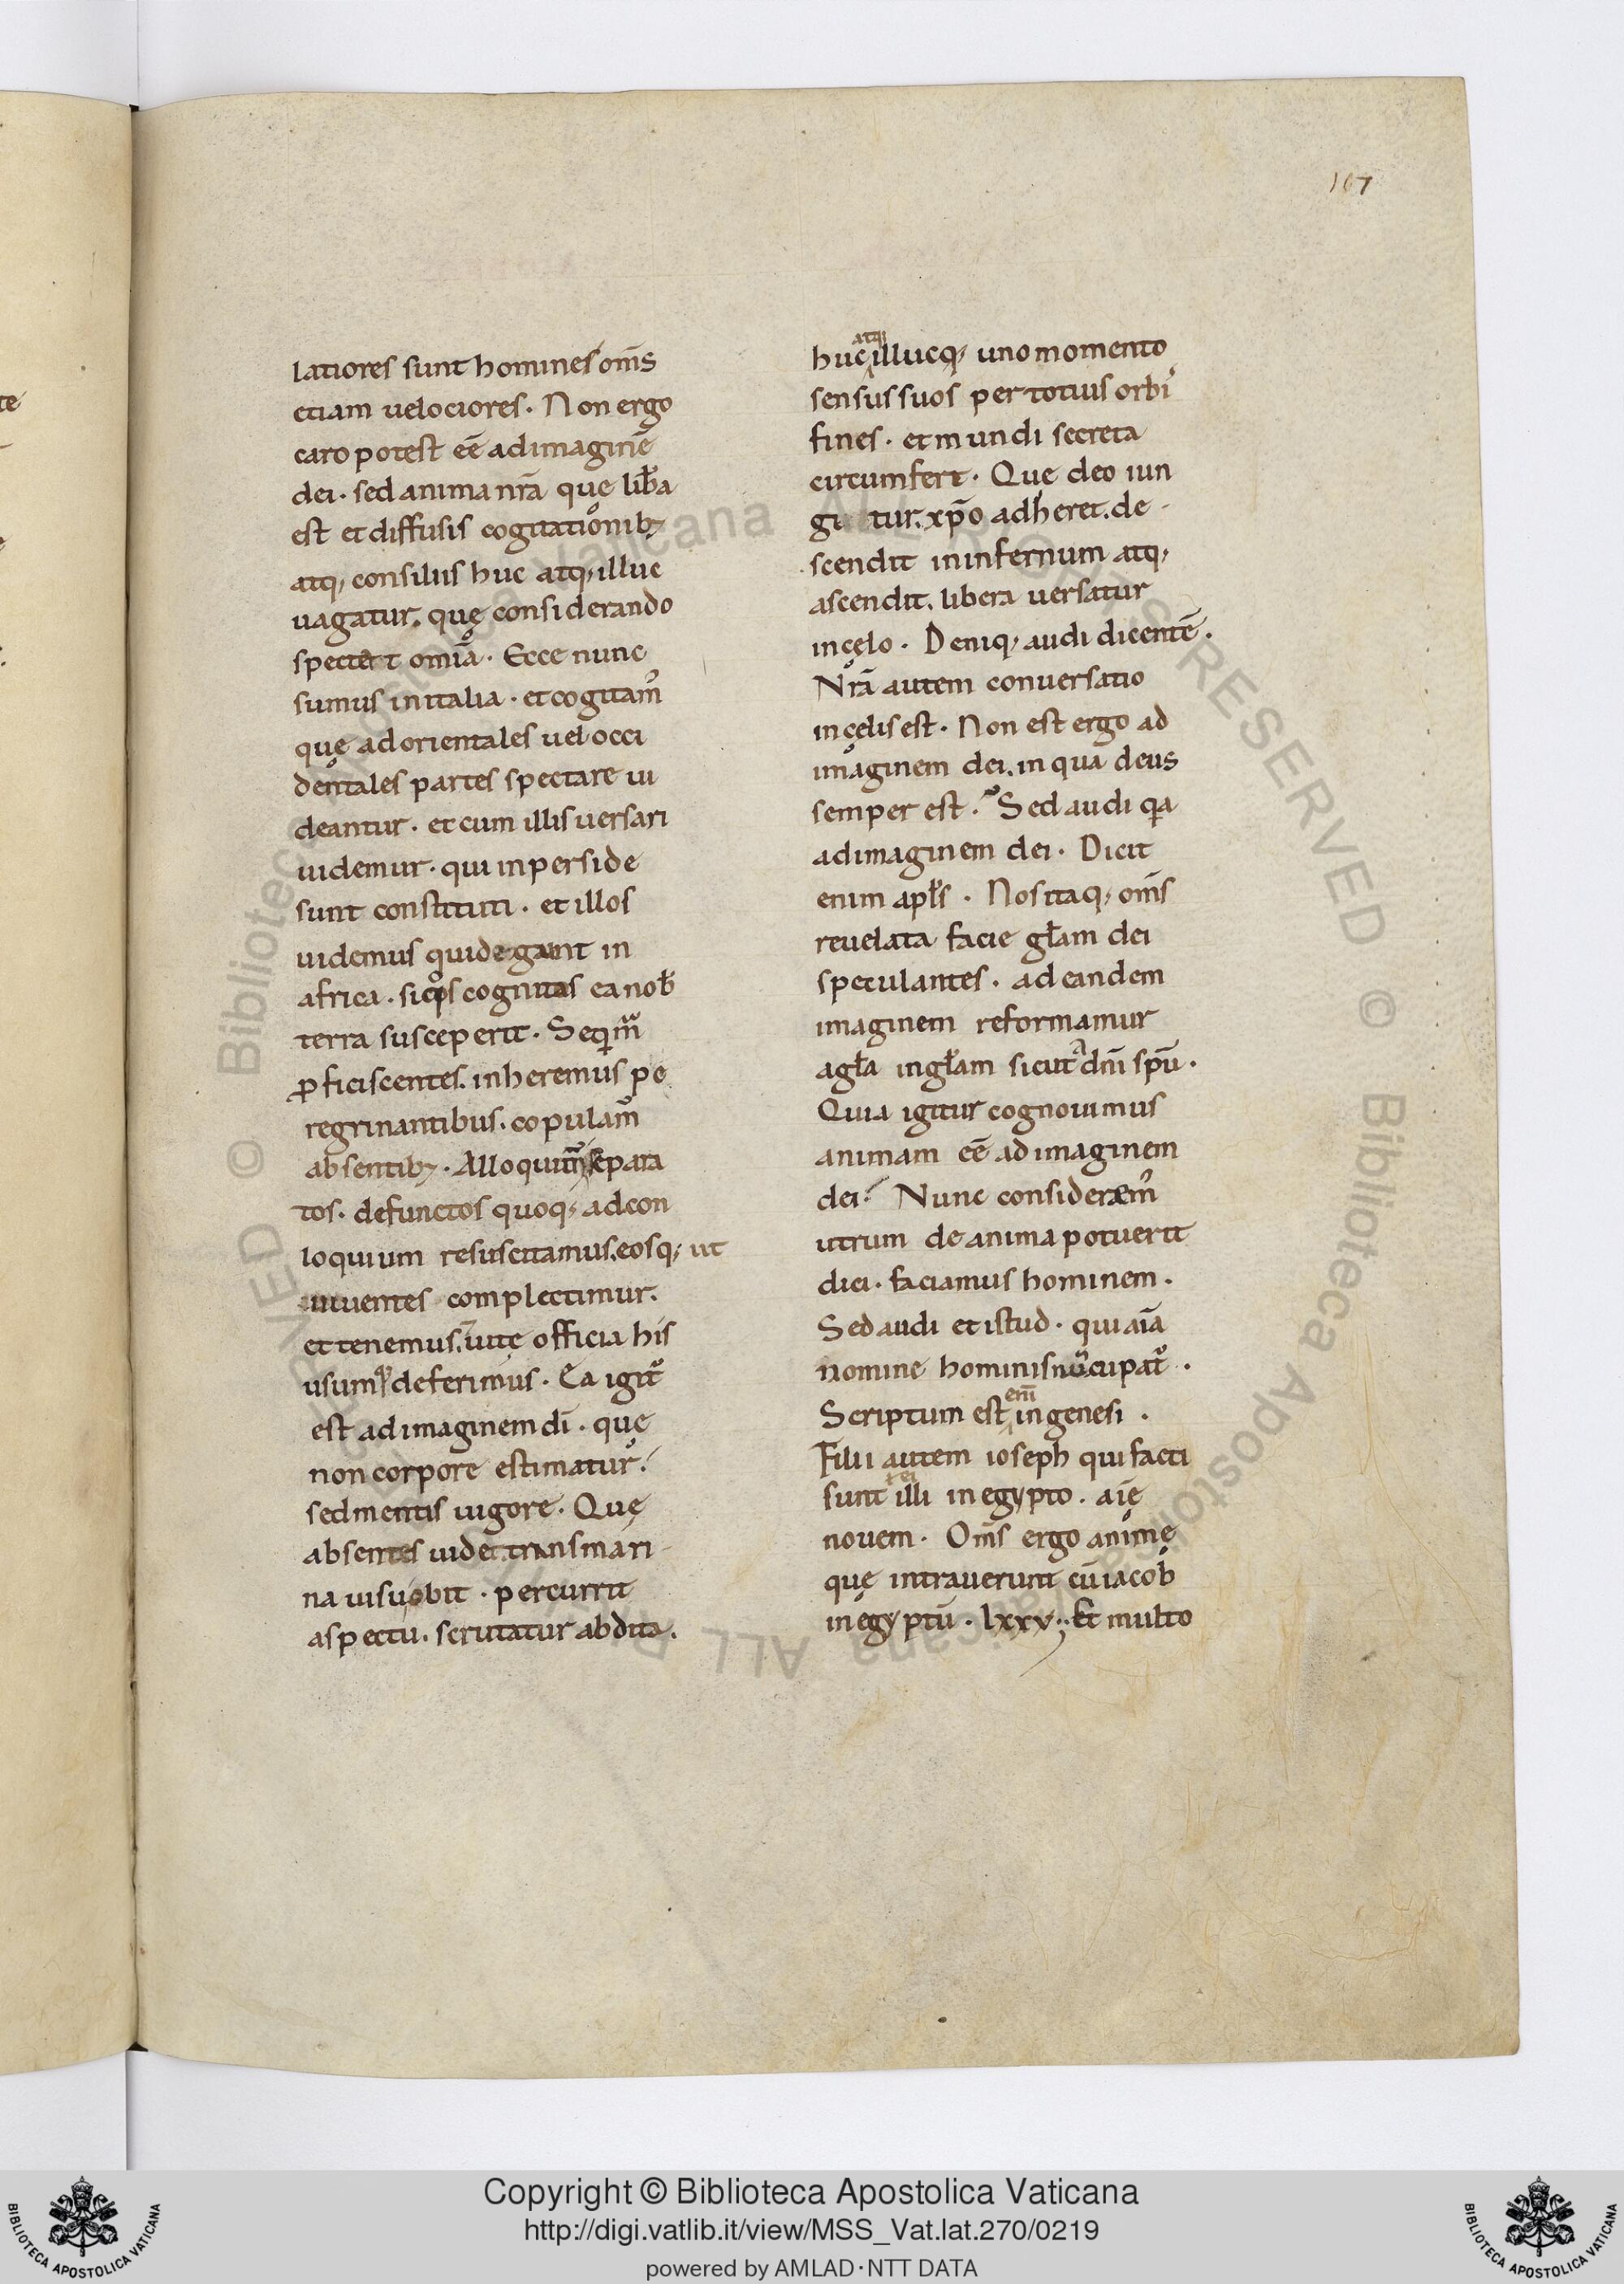 107
latiores sunt homines om̄s
etiam uelociores. Non ergo
caro potest eē ad imaginē
dei. sed anima nr̄a que lib̄a
est et diffusis cogitationib;
atq; consiliis huc atq; illuc
uagatur. quę considerando
spectat omīa. Ecce nunc
sumus in italia. et cogitam᾽
quę ad orientales uel occi
dentales partes spectare ui
deantur. et cum illis uersari
uidemur. qui in perside
sunt constituti. et illos
uidemus qui degunt in
africa. siq°s cognitos ea nob̄
terra susceperit. Seqim᾽
ꝓficiscentes. inheremus pe
regrinantibus. copulam᾽
absentib;. Alloquim᾽ separa
tos. defunctos quoq; ad con
loquium resuscitamus. eosq; ut
uiuentes complectimur.
et tenemus. uitę officia his
usumq; deferimus. Ea igit᾽
est ad imaginem dī. quę
non corpore estimatur.
sed mentis uigore. Quę
absentes uidet. transmari-
na uisu obit. percurrit
aspectu. scrutatur abdita.
atq;
huc illucq; uno momento
sensus suos per totius orbi᾽
fines. et mundi secreta
circumfert. Que deo iun
gi tur. xp̄o adheret. de-
scendit in infernum atq;
ascendit. libera uersatur
in cęlo. Deniq; audi dicentē.
Nr̄a autem conuersatio
in cęlis est. Non est ergo ad
imaginem dei. in qua deus
semper est. Sed audi qa
ad imaginem dei. Dicit
enim apl̄s. Nos itaq; om̄s
reuelata facie gl̄am dei
speculantes. ad eandem
imaginem reformamur
a gl̄a in gl̄am sicut a dn̄i spū.
Quia igitur cognouimus
animam eē ad imaginem
dei. Nunc considerem᾽
utrum de anima potuerit
dici. faciamus hominem.
Sed audi et istud. qui aīa
nomine hominis nūcupat᾽.
em̄
Scriptum est in genesi.
Filii autem ioseph qui facti
rei
sunt illi in egypto. aīę
nouem. Om̄s ergo animę
quę intrauerunt cū iacob
in egyptū. lxxv. Et multo
Copyright © Biblioteca Apostolica Vaticana
http://digi.vatlib.it/view/MSS_Vat.lat.270/0219
powered by AMLAD·NTT DATA